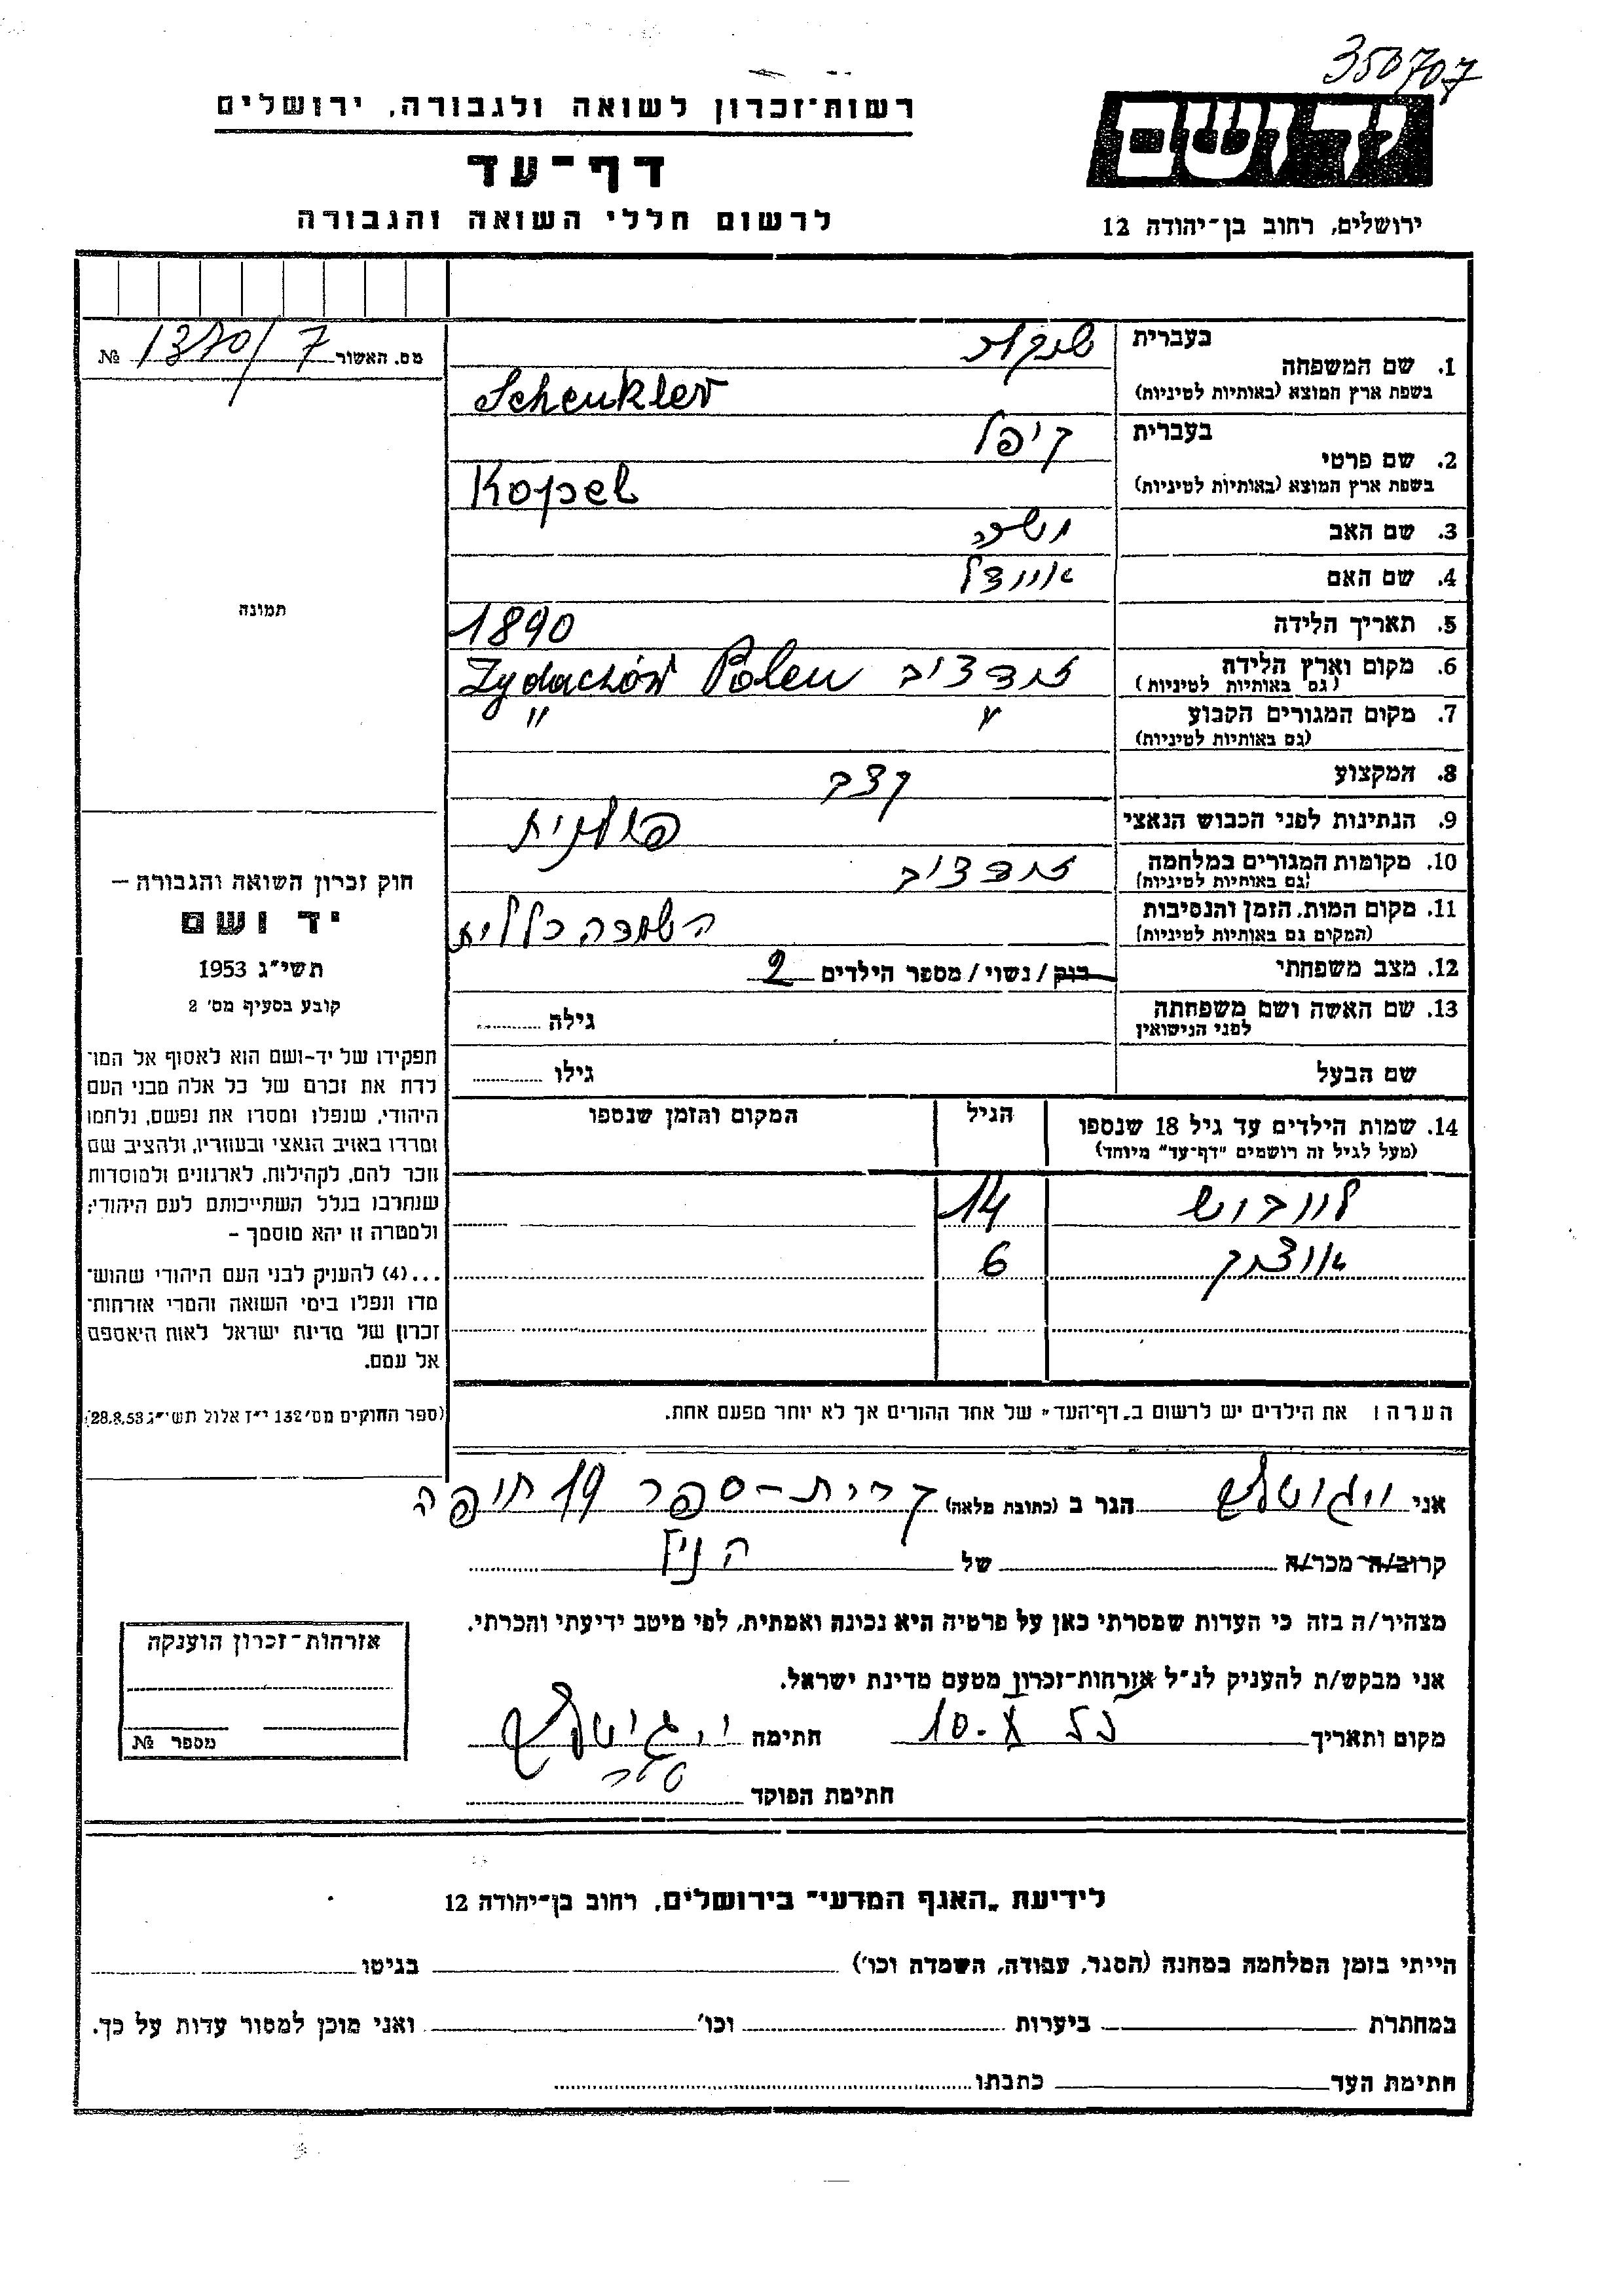 350707
ידושם
רשות-זכרון לשואה ולגבורה, ירושלים
דף-עד
לרשום חללי השואה והגבורה
ירושלים, רחוב בן-יהודה 12
מס. האשור 1370/7 №
בעברית
1. שם המשפחה
בשפת ארץ המוצא (באותיות לטיניות) Schenkler
בעברית
2. שם פרטי
בשפת ארץ המוצא (באותיות לטיניות) Kopel
3. שם האב משה
4. שם האם איידל
5. תאריך הלידה 1890
6. מקום וארץ הלידה Zydachów Polen
(גם באותיות לטיניות)
7. מקום המגורים הקבוע " "
(גם באותיות לטיניות)
8. המקצוע קצב
9. הנתינות לפני הכבוש הנאצי פולנית
10. מקומות המגורים במלחמה
(גם באותיות לטיניות)
11. מקום המות, הזמן והנסיבות השמדה כללית
(המקום גם באותיות לטיניות)
12. מצב משפחתי רוק / נשוי / מספר הילדים 2
13. שם האשה ושם משפחתה גילה
לפני הנישואין
שם הבעל גילו
14. שמות הילדים עד גיל 18 שנספו הגיל המקום והזמן שנספו
(מעל לגיל זה רושמים "דף-עד" מיוחד)
לייבוש 14
6
הערה: את הילדים יש לרשום ב„דף-העד" של אחד ההורים אך לא יותר מפעם אחת.
תמונה
חוק זכרון השואה והגבורה –
יד ושם
תשי"ג 1953
קובע בסעיף מס' 2
תפקידו של יד-ושם הוא לאסוף אל המו-
לדת את זכרם של כל אלה מבני העם
היהודי, שנפלו ומסרו את נפשם, נלחמו
ומרדו באויב הנאצי ובעוזריו, ולהציב שם
וזכר להם, לקהילות, לארגונים ולמוסדות
שנחרבו בגלל השתייכותם לעם היהודי;
ולמטרה זו יהא מוסמך –
...(4) להעניק לבני העם היהודי שהוש-
מדו ונפלו בימי השואה והמרי אזרחות-
זכרון של מדינת ישראל לאות היאספם
אל עמם.
(ספר החוקים מס' 132 י"ז אלול תשי"ג 28.8.53)
אני הגר ב (כתובת מלאה) קרית-ספר 19 חיפה
קרוב/ה מכר/ה של הנ"ל
מצהיר/ה בזה כי העדות שמסרתי כאן על פרטיה היא נכונה ואמתית, לפי מיטב ידיעתי והכרתי.
אני מבקש/ת להעניק לנ"ל אזרחות-זכרון מטעם מדינת ישראל.
מקום ותאריך 10.X חתימה
חתימת הפוקד
אזרחות-זכרון הוענקה
מספר №
לידיעת „האגף המדעי" בירושלים, רחוב בן-יהודה 12
הייתי בזמן המלחמה במחנה (הסגר, עבודה, השמדה וכו') בגיטו
במחתרת ביערות וכו' ואני מוכן למסור עדות על כך.
חתימת העד כתבתו